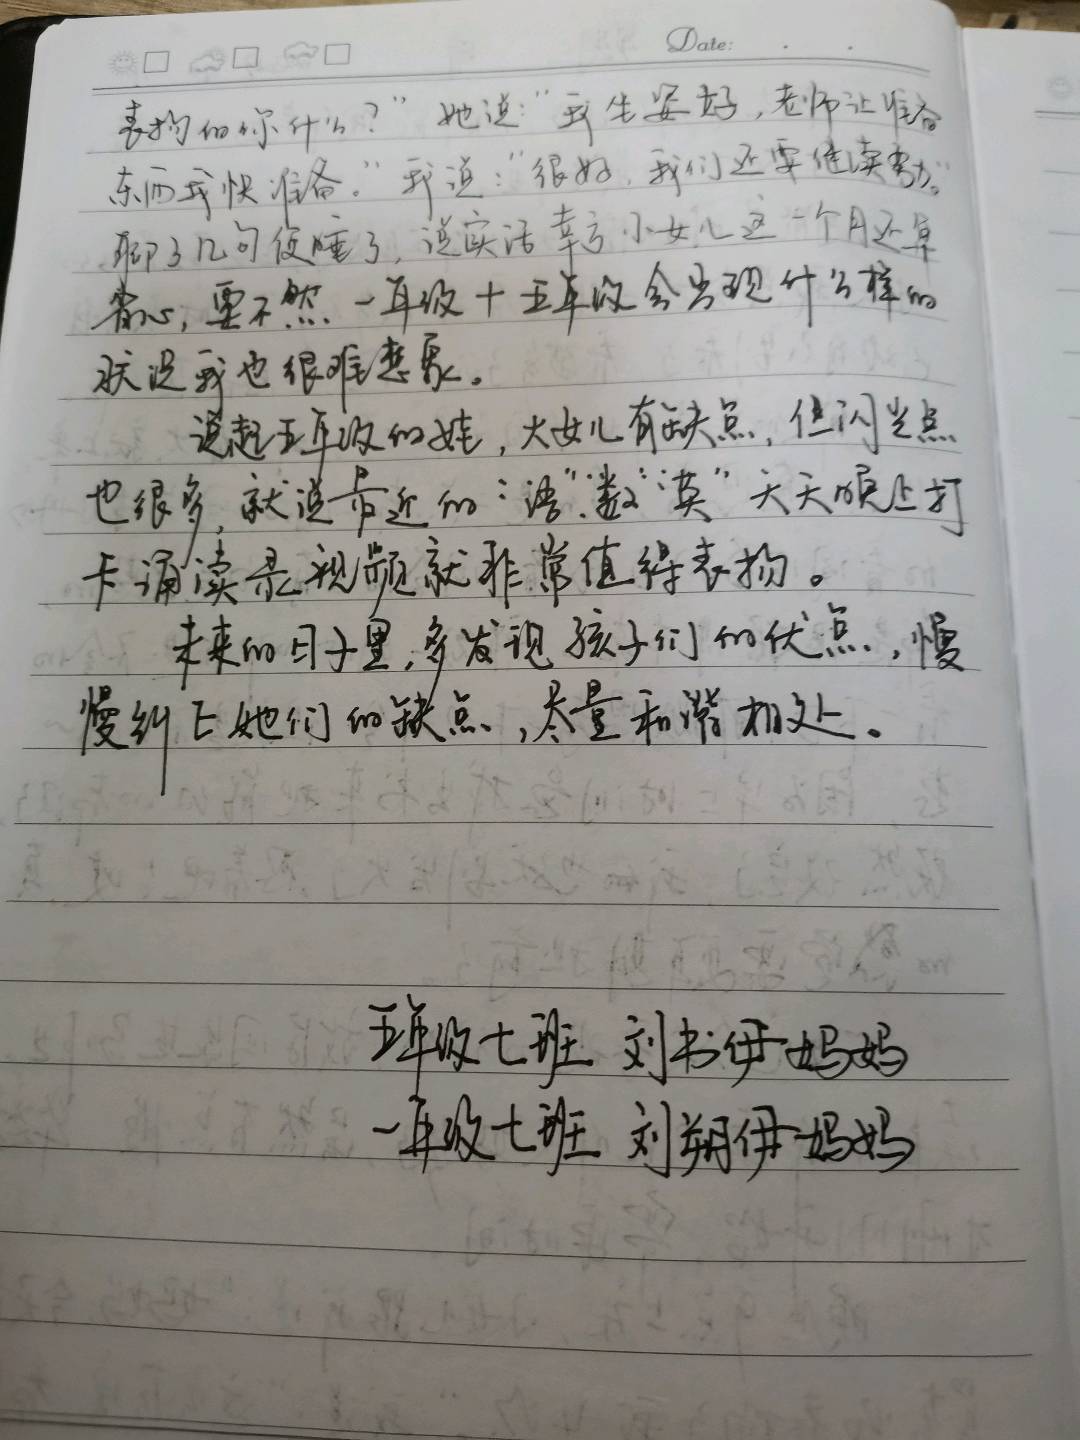 Date:
表扬的你什么？”她说：“我坐姿好，老师让准备
东西我快准备。”我说：“很好，我们还要继续努力。”
聊了几句便睡了，说实话幸亏小女儿这一个月还算
省心，要不然一年级十五年级会出现什么样的
状况我也很难想象。
说起五年级的娃，大女儿有缺点，但闪光点
也很多，就说最近的“语”“数”“英”天天晚上打
卡诵读录视频就非常值得表扬。
未来的日子里，多发现孩子们的优点，慢
慢纠正她们的缺点，尽量和谐相处。
五年级七班 刘书伊妈妈
一年级七班 刘朔伊妈妈